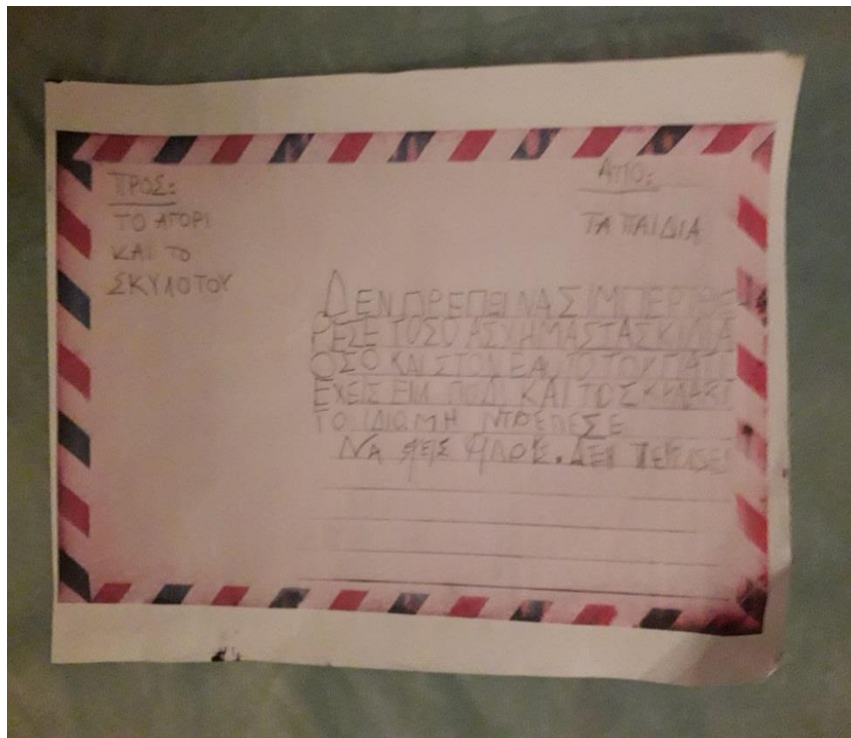 ΠΡΟΣ:
ΤΟ ΑΓΟΡΙ
ΚΑΙ ΤΟ
ΣΚΥΛΟΤΟΥ
ΑΠΟ:
ΤΑ ΠΑΙΔΙΑ
ΔΕΝ ΠΡΕΠΕΙ ΝΑ ΣΙΜΠΕΡΙΦΕ
ΡΕΣΕ ΤΟΣΟ ΑΣΧΗΜΑ ΣΤΑ ΣΚΥΛΙΑ
ΟΣΟ ΚΑΙ ΣΤΟΝ ΕΑΥΤΟ ΣΟΥ ΓΙΑΤΙ
ΕΧΕΙΣ ΕΝΑ ΠΟΔΙ ΚΑΙ ΤΟ ΣΚΥΛΑΚΙ
ΤΟ ΙΔΙΟ ΜΗ ΝΤΡΕΠΕΣΕ
ΝΑ ΔΕΝ